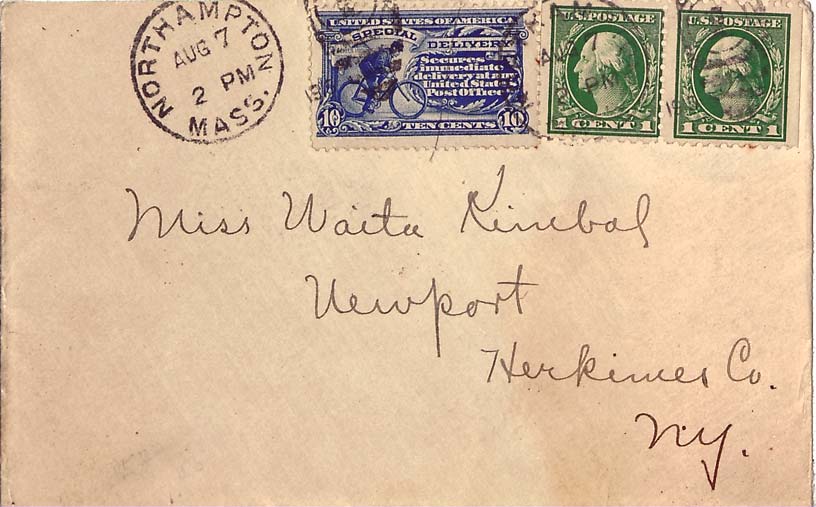 NORTHAMPTON
AUG 7
2 PM
MASS.
UNITED STATES OF AMERICA
SPECIAL DELIVERY
Secures
immediate
delivery at any
United States
Post Office
10 TEN CENTS 10
U.S. POSTAGE
1 CENT 1
U.S. POSTAGE
1 CENT 1
Miss Waita Kimbal
Newport
Herkimer Co.
N.Y.